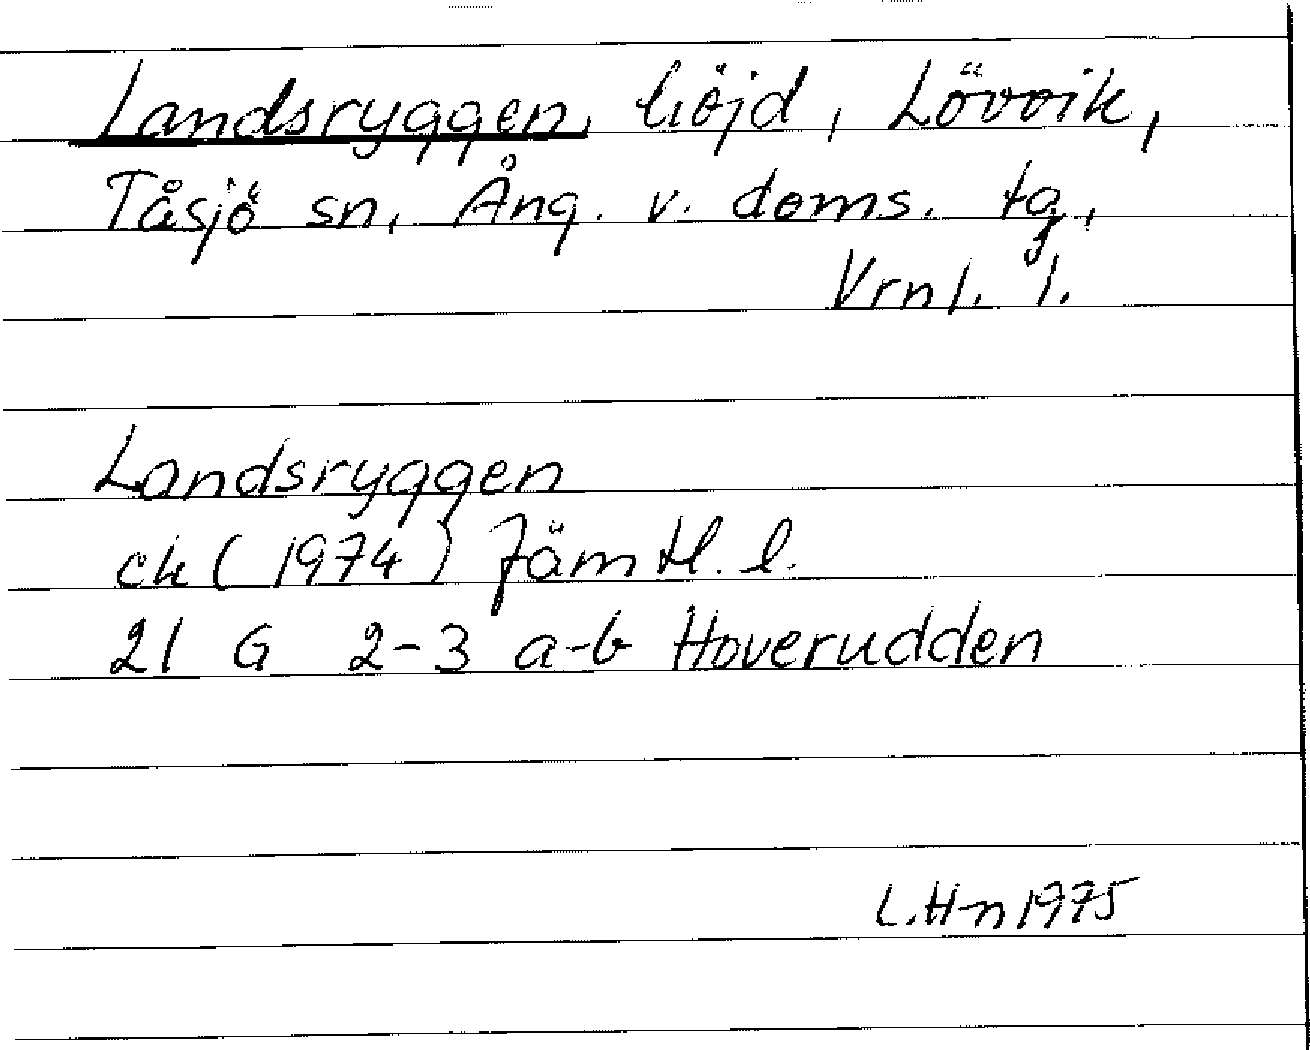 Landsryggen, höjd, Lövvik,
Tåsjö sn, Ång. v. doms. tg,
Vrnl. l.
Landsryggen
ek (1974) Jämtl. l.
21 G 2-3 a-b Hoverudden
L.H-n 1975